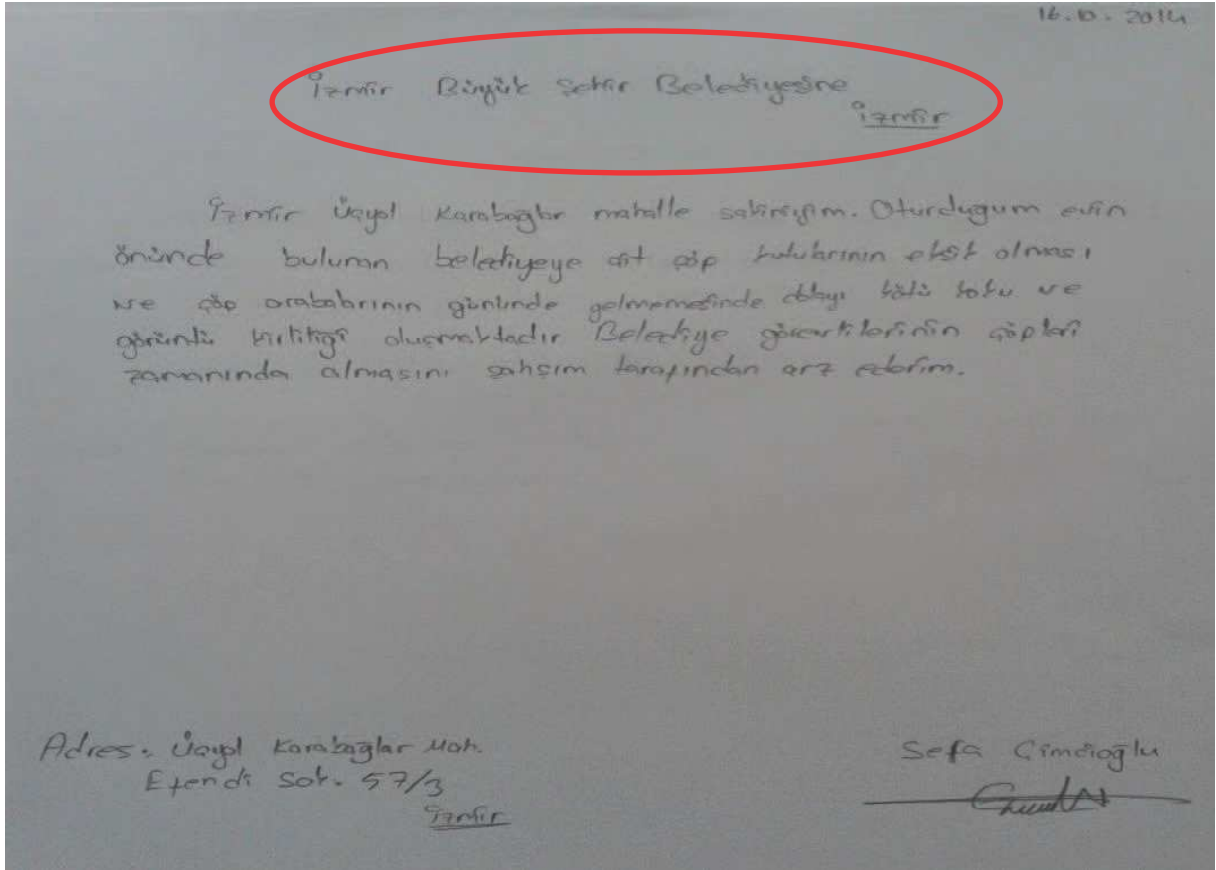 16.10.2014
İzmir Büyük Şehir Belediyesine
İzmir
İzmir Üçyol Karabağlar mahalle sakiniyim. Oturduğum evin
önünde bulunan belediyeye ait çöp kutularının eksik olması
ve çöp arabalarının gününde gelmemesinde dolayı kötü koku ve
görüntü kirliliği oluşmaktadır Belediye görevlilerinin çöpleri
zamanında almasını şahsım tarafından arz ederim.
Adres: Üçyol Karabağlar Mah.
Efendi Sok. 57/3
İzmir
Sefa Cimdioğlu